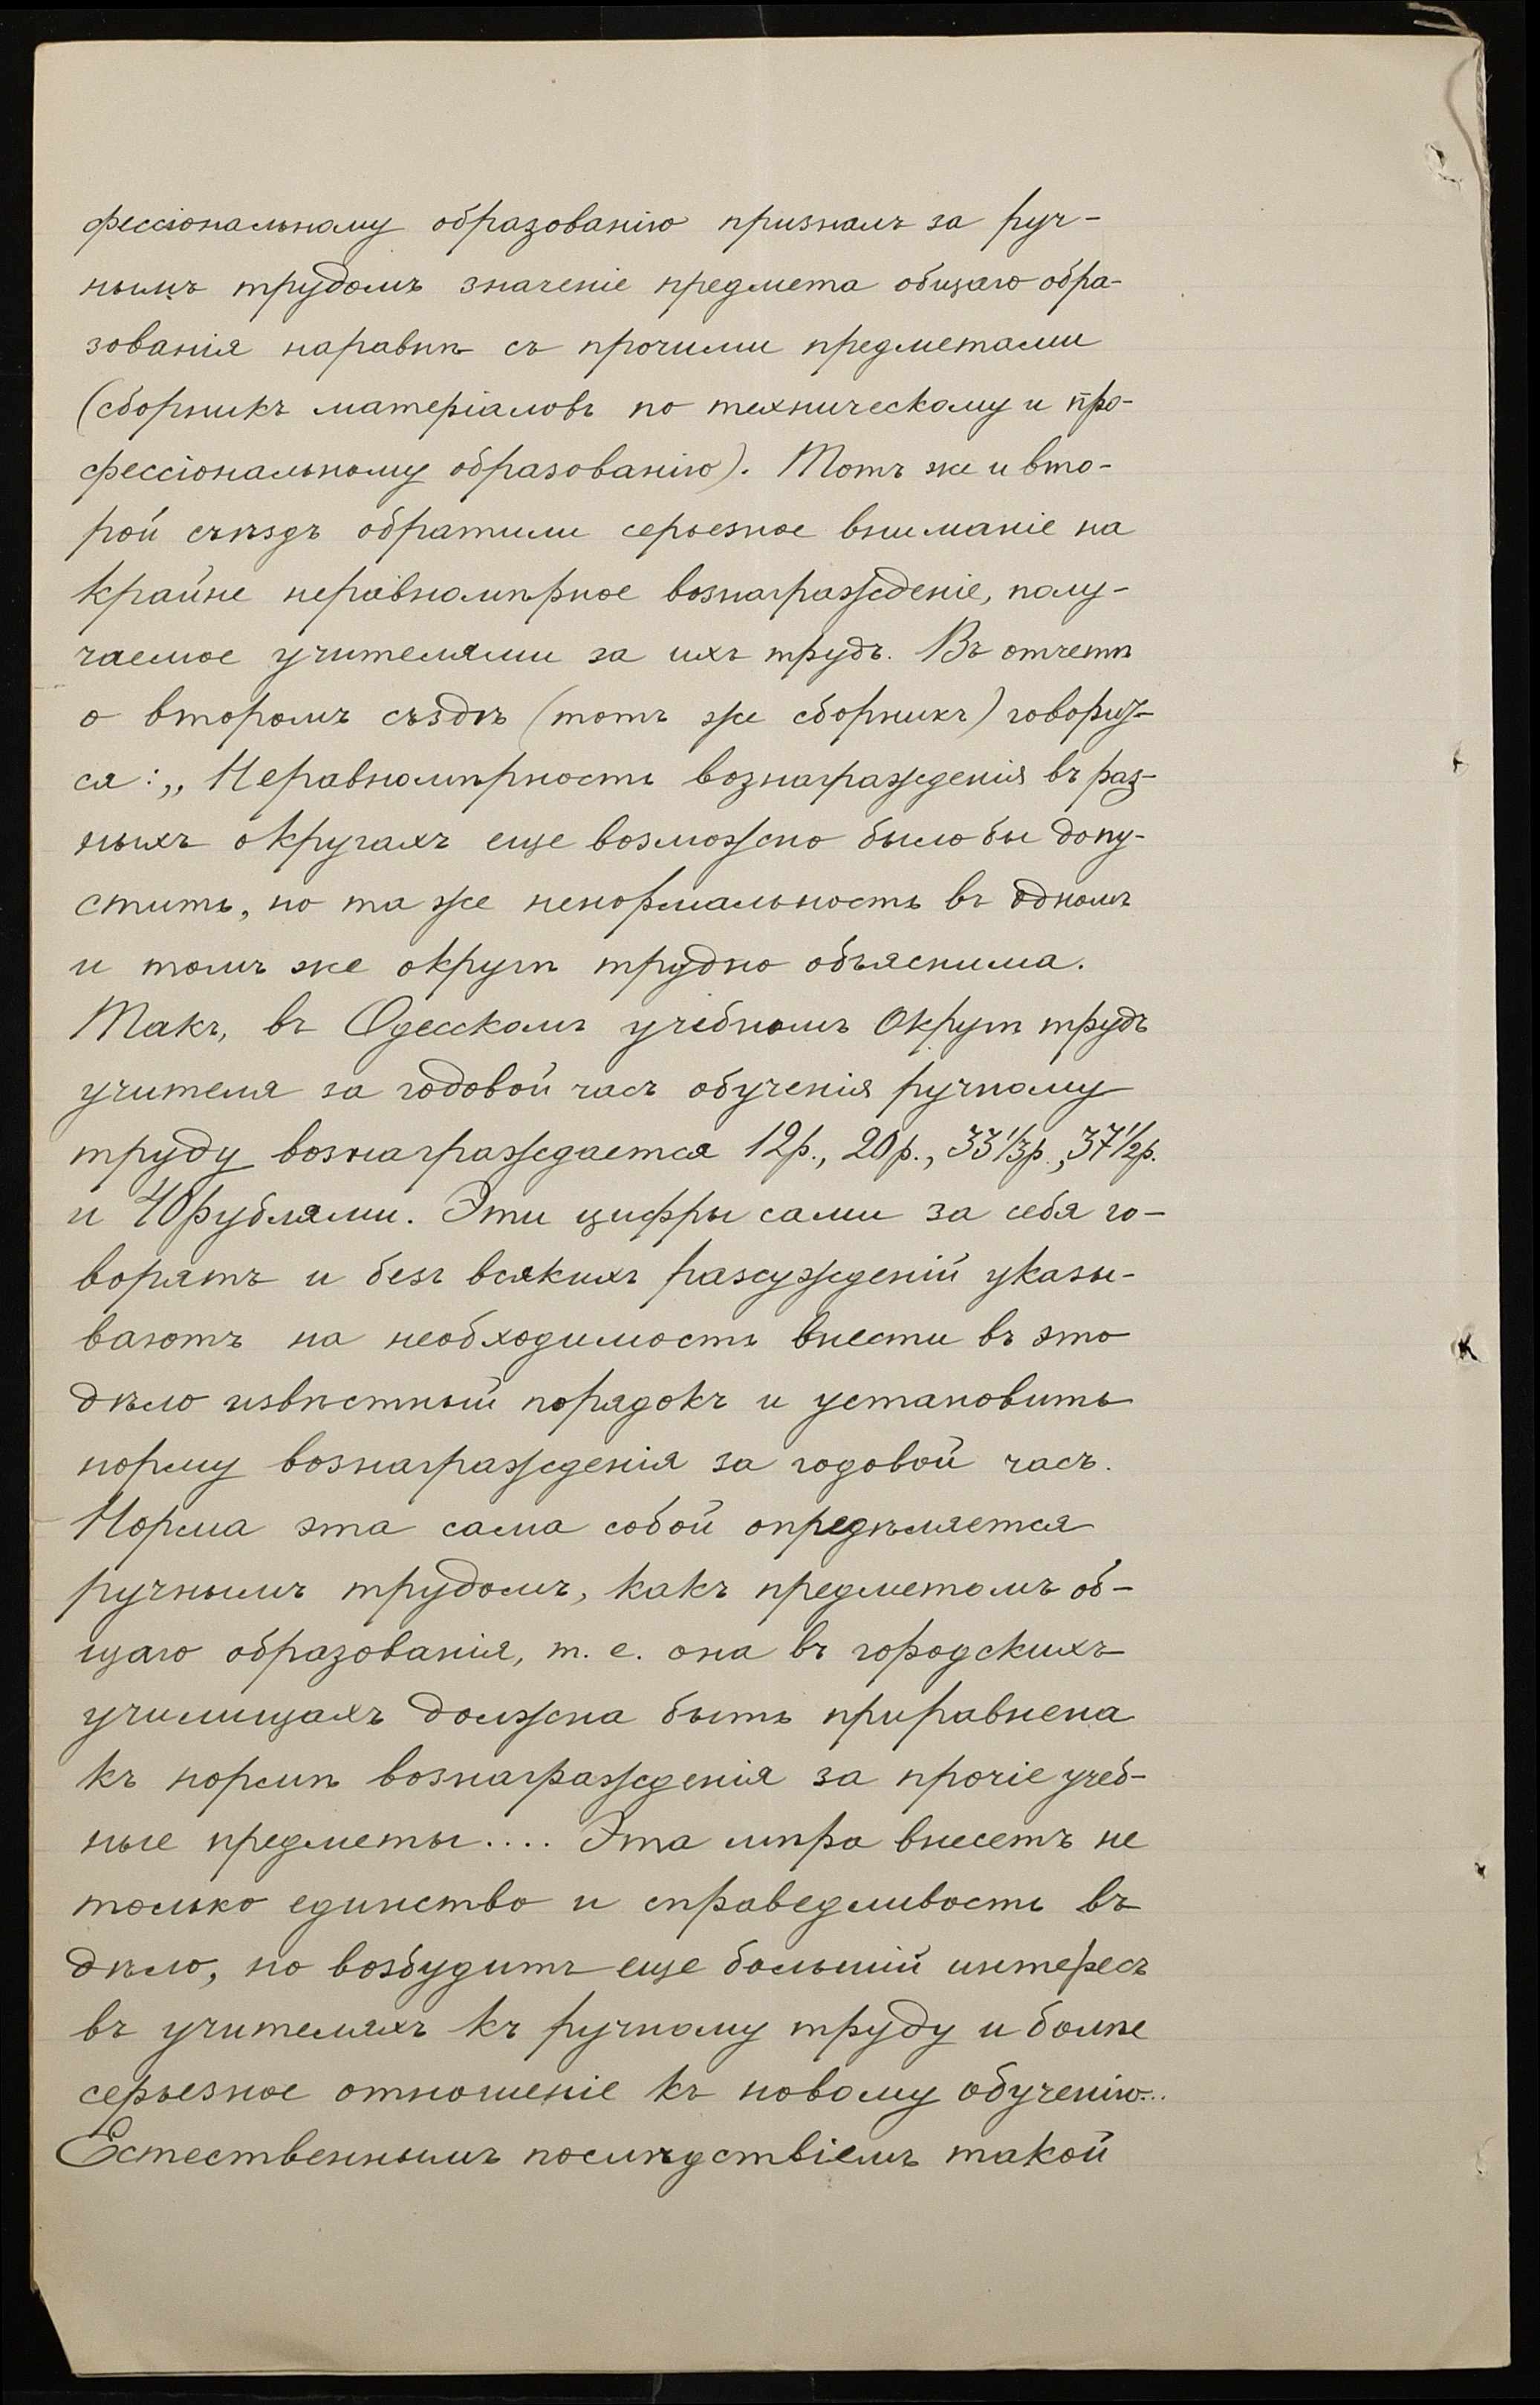 фессіональному образованію призналъ за руч-
нымъ трудомъ значеніе предмета общаго обра-
зованія наравнѣ съ прочими предметами
(сборникъ матеріаловъ по техническому и про-
фессіональному образованію). Тотъ же и вто-
рой съѣздъ обратили серьезное вниманіе на
крайне неравномѣрное вознагражденіе, полу-
чаемое учителями за ихъ трудъ. Въ отчетѣ
о второмъ съѣздѣ (тотъ же сборникъ) говорит-
ся: „Неравномѣрность вознагражденія въ раз-
ныхъ округахъ еще возможно было бы допу-
стить, но та же ненормальность въ одномъ
и томъ же округѣ трудно объяснима.
Такъ, въ Одесскомъ учебномъ Округѣ трудъ
учителя за годовой часъ обученія ручному
труду вознаграждается 12р., 20р., 33⅓р., 37½р.
и 40 рублями. Эти цифры сами за себя го-
ворятъ и безъ всякихъ разсужденій указы-
ваютъ на необходимость внести въ это
дѣло извѣстный порядокъ и установить
норму вознагражденія за годовой часъ.
Норма эта сама собой опредѣляется
ручнымъ трудомъ, какъ предметомъ об-
щаго образованія, т. е. она въ городскихъ
училищахъ должна быть приравнена
къ нормѣ вознагражденія за прочіе учеб-
ные предметы.... Эта мѣра внесетъ не
только единство и справедливость въ
дѣло, но возбудитъ еще большій интересъ
въ учителяхъ къ ручному труду и болѣе
серьезное отношеніе къ новому обученію...
Естественнымъ послѣдствіемъ такой